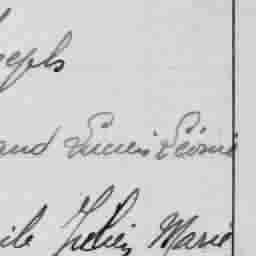 seph
and Lucien Léonie
ile Julien Marie